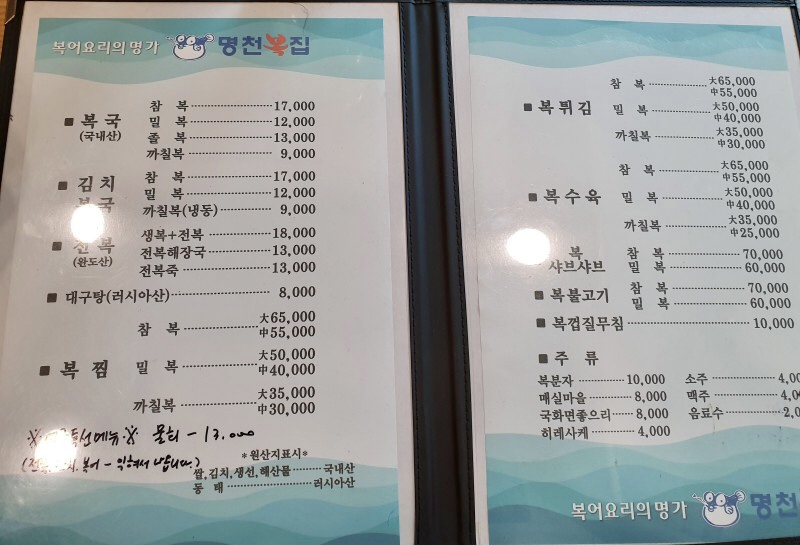 복어요리의 명가 명천복집
■ 복국 (국내산)
참 복 17,000
밀 복 12,000
졸 복 13,000
까칠복 9,000
■ 김치 복국
참 복 17,000
밀 복 12,000
까칠복(냉동) 9,000
■ 전복 (완도산)
생복+전복 18,000
전복해장국 13,000
전복죽 13,000
■ 대구탕(러시아산) 8,000
■ 복찜
참 복 大65,000
中55,000
밀 복 大50,000
中40,000
까칠복 大35,000
中30,000
특선메뉴 ※ 물회 - 13,000
복어 - 익혀서 나옵니다.)
*원산지표시*
쌀,김치,생선,해산물 국내산
동 태 러시아산
■ 복튀김
참 복 大65,000
中55,000
밀 복 大50,000
中40,000
까칠복 大35,000
中30,000
■ 복수육
참 복 大65,000
中55,000
밀 복 大50,000
中40,000
까칠복 大35,000
中25,000
복 샤브샤브
참 복 70,000
밀 복 60,000
■ 복불고기
참 복 70,000
밀 복 60,000
■ 복껍질무침 10,000
■ 주 류
복분자 10,000 소주 4,00
매실마을 8,000 맥주 4,00
국화면좋으리 8,000 음료수 2,0
히레사케 4,000
복어요리의 명가 명천